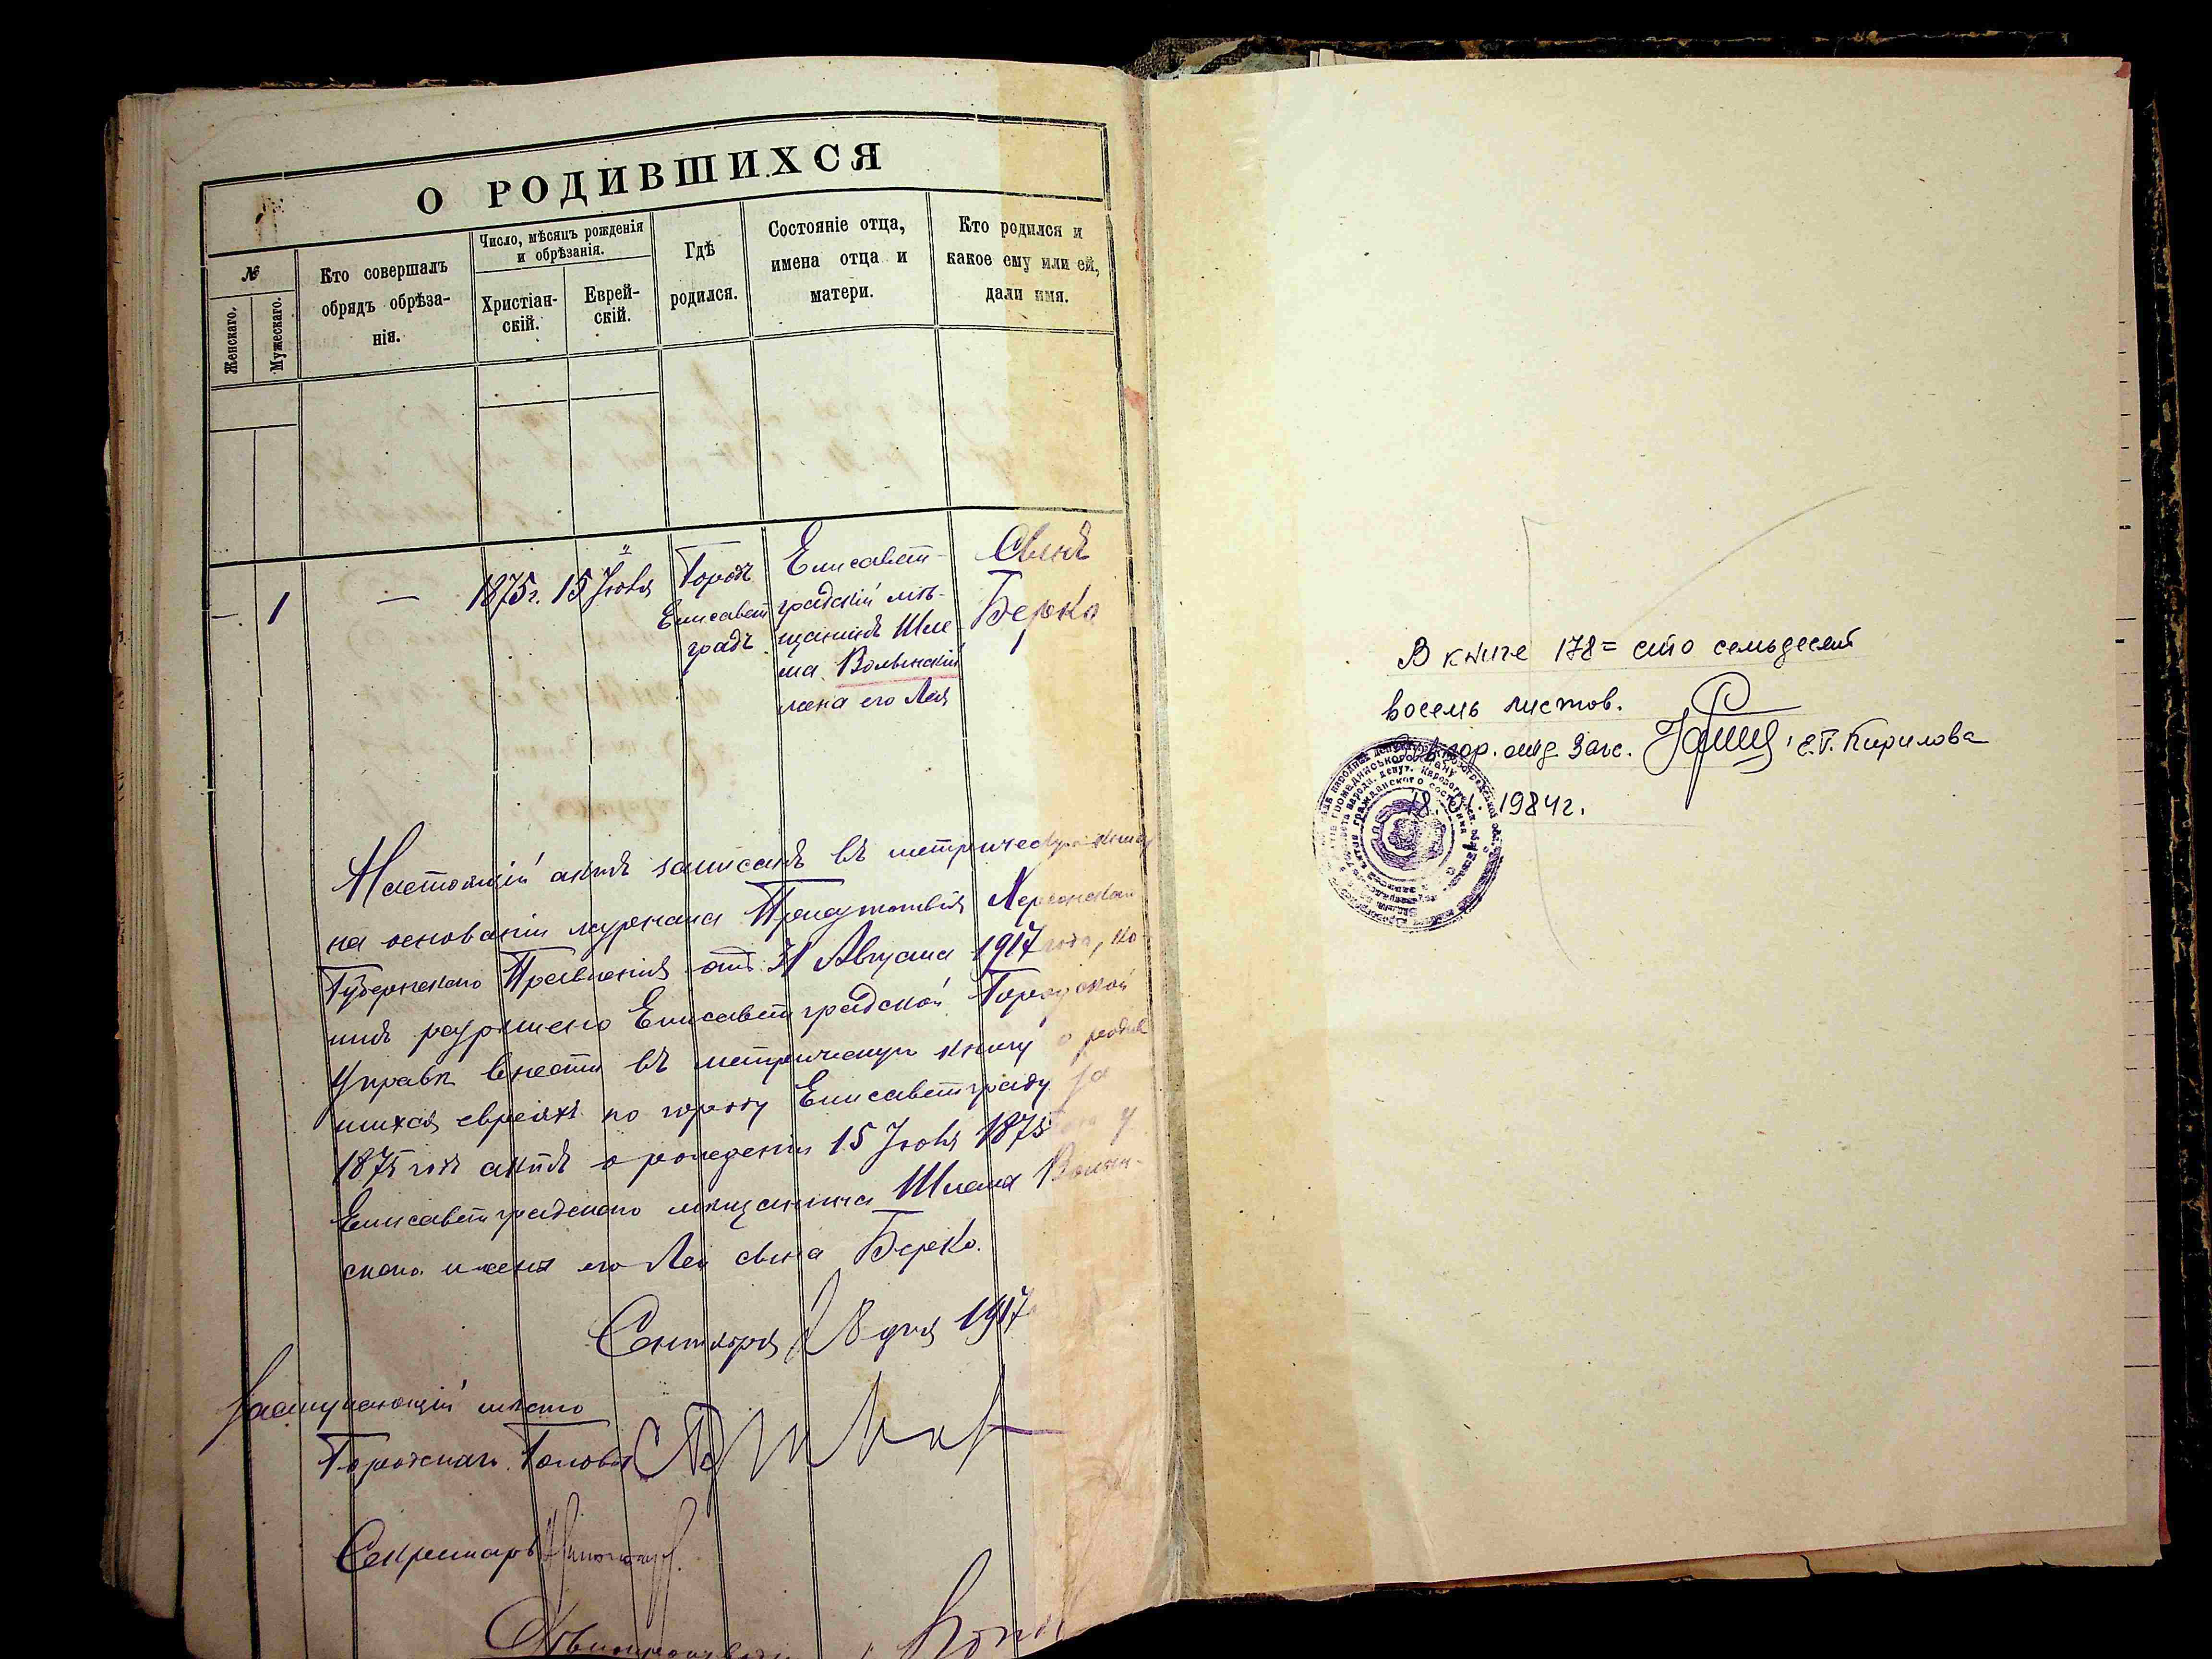 О РОДИВШИХСЯ
№
Женскаго.
Мужескаго.
Кто совершалъ
обрядъ обрѣза-
нія.
Число, мѣсяцъ рожденія
и обрѣзанія.
Христіан-
скій.
Еврей-
скій.
Гдѣ
родился.
Состояніе отца,
имена отца и
матери.
Кто родился и
какое ему или ей,
дали имя.
— 1
—
1875г. 15 Іюля
"
Городъ
Елисавет
градъ.
Елисавет-
градскій мѣ-
щанинъ Шле
ма Волынскій
жена его Лея
Сынъ
Берко
Настоящій актъ записанъ въ метрическую книгу
на основаніи журнала Присутствія Херсонскаго
Губернскаго Правленія отъ 31 Августа 1917 года, ко-
имъ разрѣшено Елисаветградской Городской
Управѣ внести въ метрическую книгу о родив
шихся евреяхъ по городу Елисаветграду за
1875 годъ актъ о рожденіи 15 Іюля 1875 года у
Елисаветградскаго мѣщанина Шлемы Волын-
скаго и жены его Леи сына Берко.
Сентября 28 дня 1917
Заступающій мѣсто
Городского Головы
Секретарь
Дѣлопроизводи
В книге 178 = сто семьдесят
восемь листов.
Зав. гор. отд Загс. Е.Г. Кирилова
18.01.1984г.